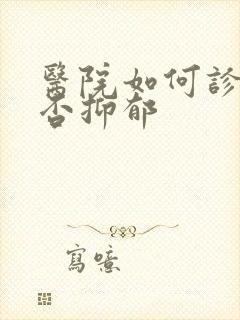 醫院如何診
否抑郁
寫噫